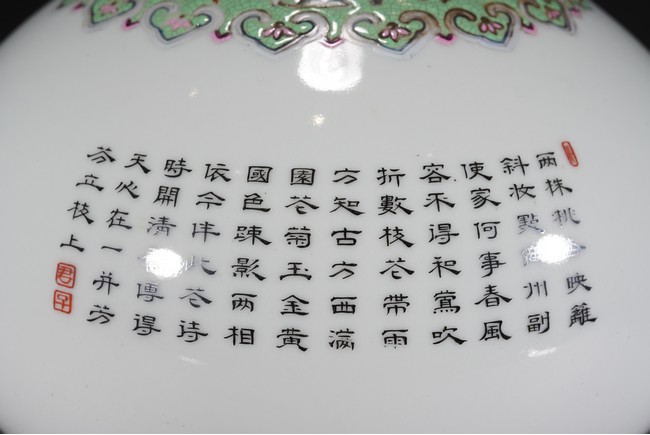 两株桃映離
斜妝點州副
使家何事春風
容不得和鶯吹
折數枝花帶雨
方知古方西滿
園花菊玉金黃
國色踈影两相
依今伴此花诗
時開清傳得
天心在一并芳
芬立枝上
君
子